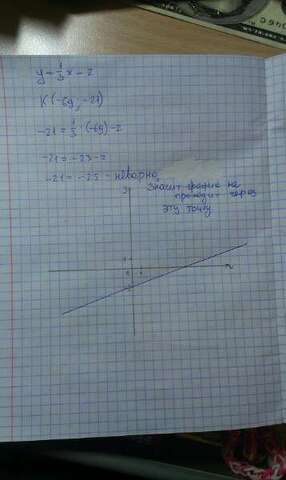 y = 1/3 x - 2
K (-69, -21)
-21 = 1/3 · (-69) - 2
-21 = -23 - 2
-21 = -25 - неверно,
значит график не
проходит через
эту точку
y
x